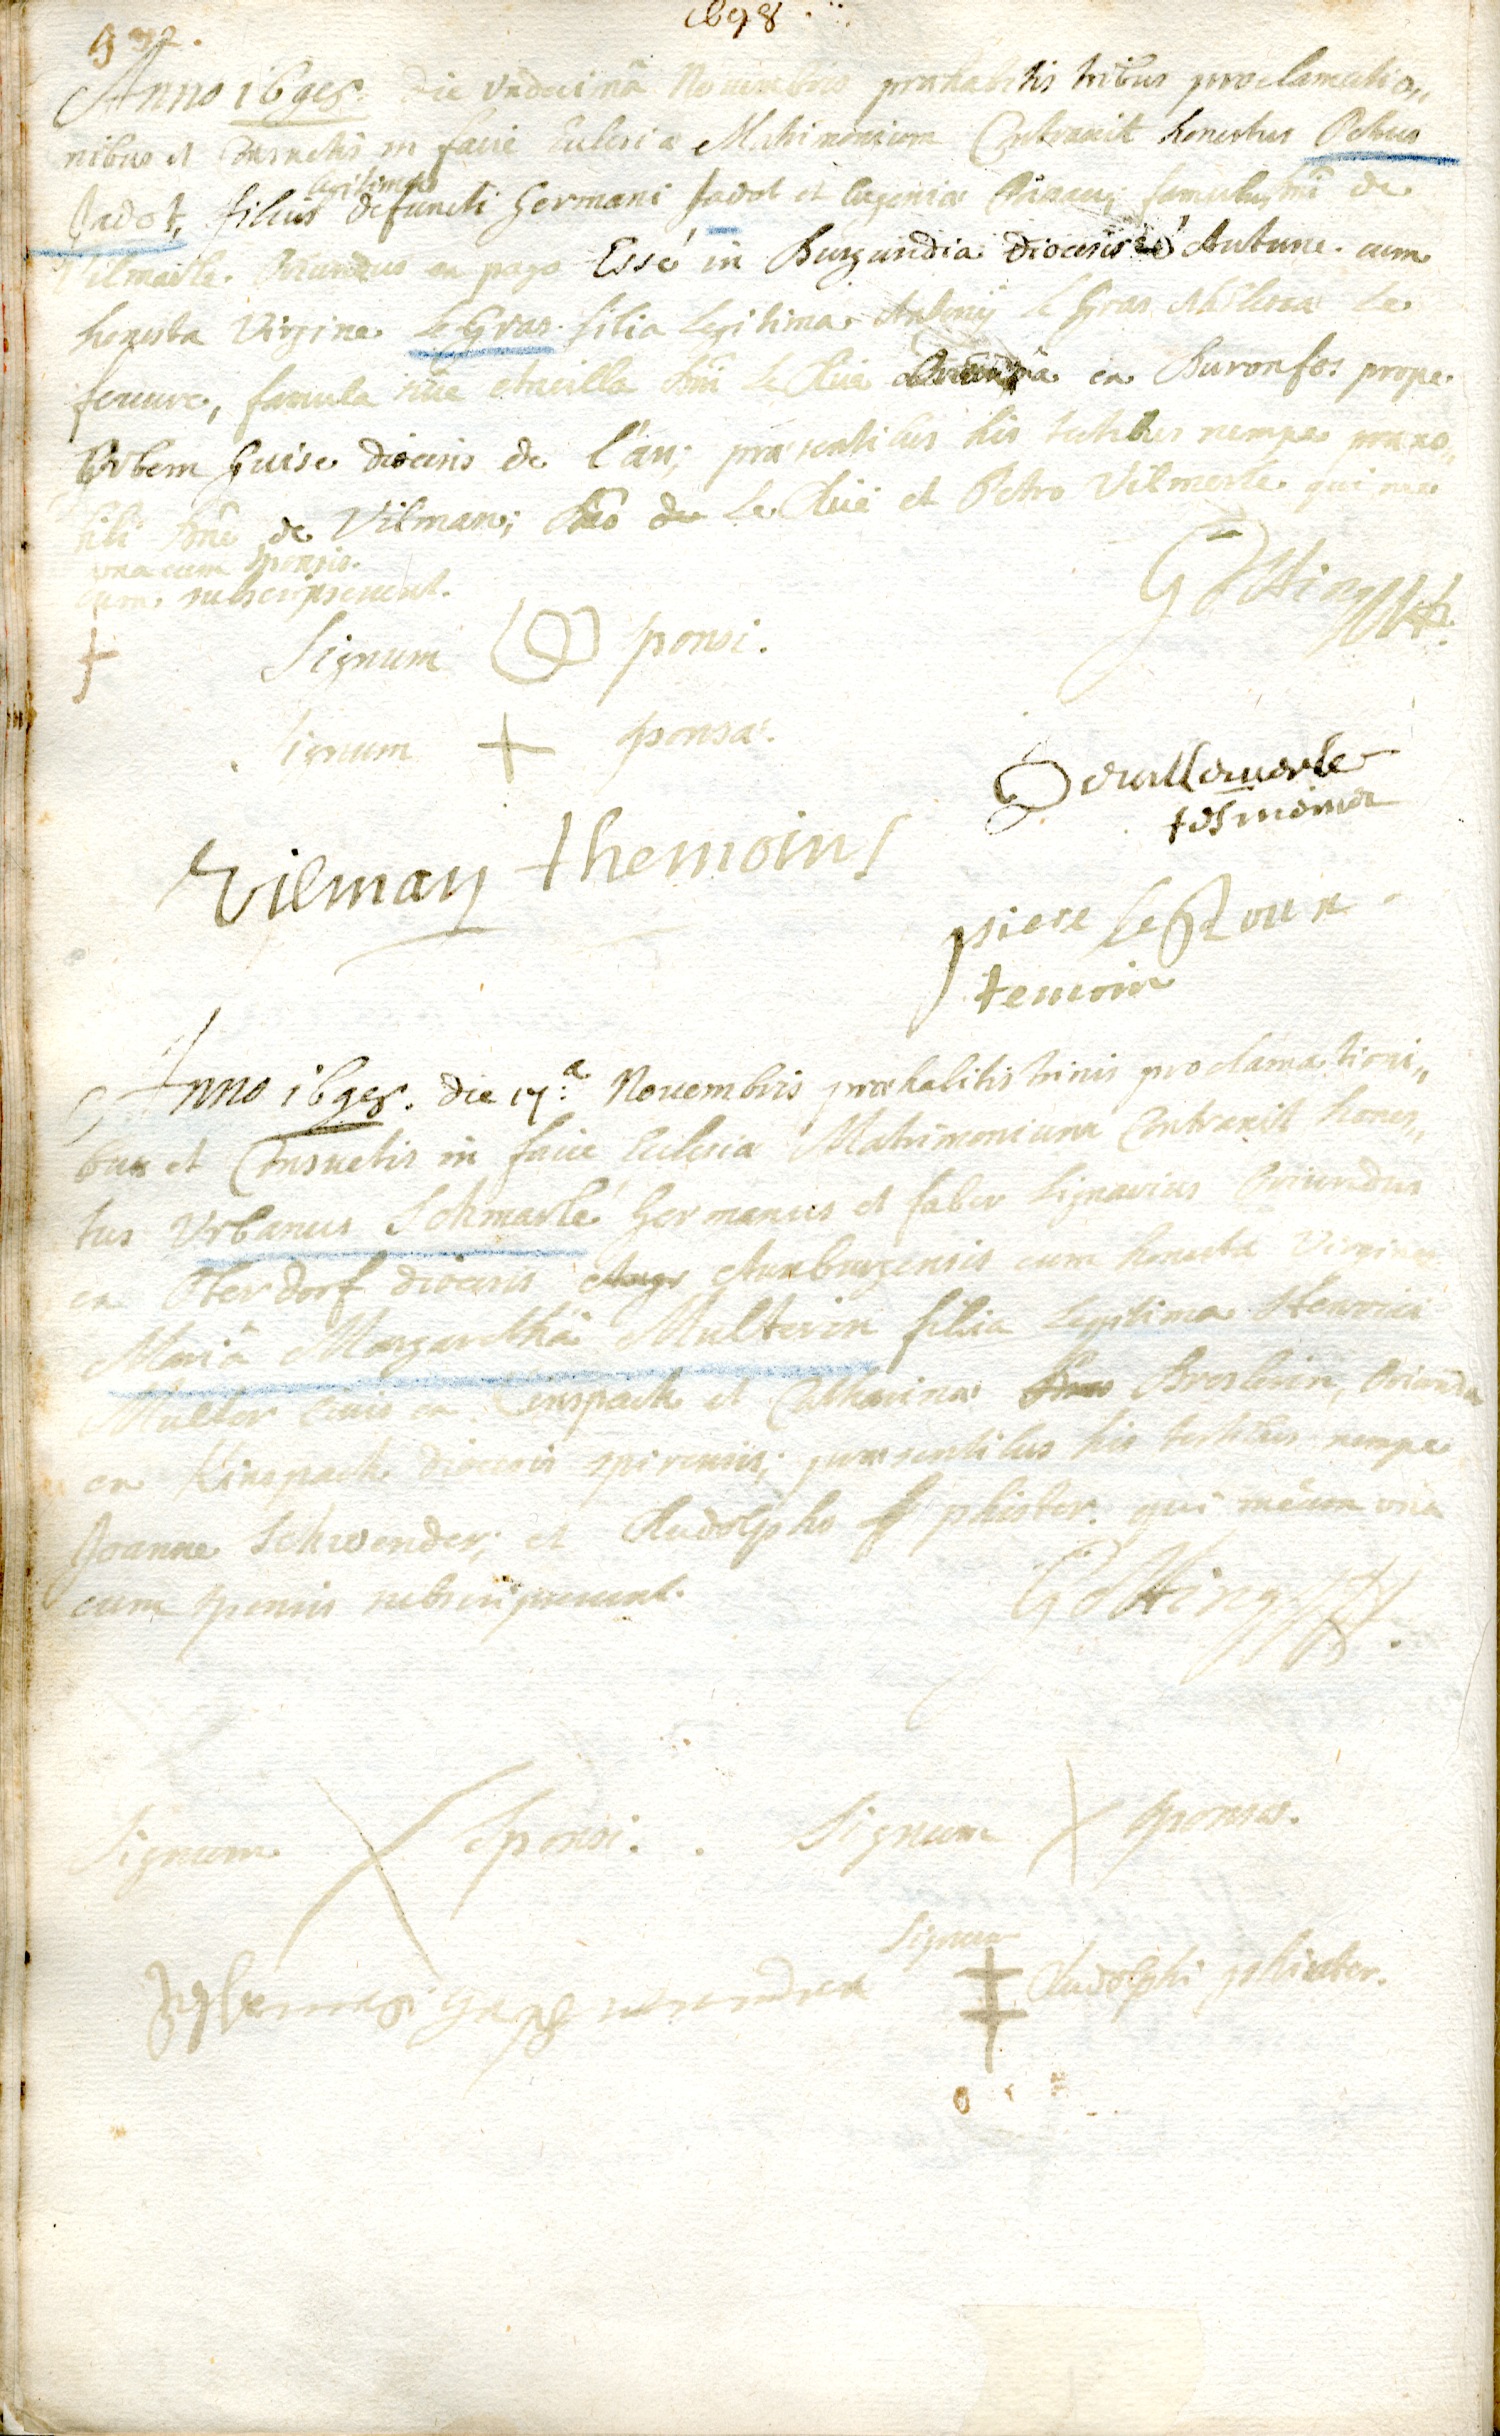 1698
Anno 1698. die undecimâ Novembris præhabitis tribus proclamatio„
nibus et Consuetis in facie Ecclesiæ Matrimonium Contraxit honestus Petrus
legitimus
Jadot, filius defuncti Germani Jadot et Eugeniæ famulus dni de
Vilmerle. Oriundus ex pago Essé in Burgundia diocesis Autune. cum
honesta Virgine Le Gras. filia legitima Antonij le Gras et le
feuure, famula sive Ancilla dni le Rue ex Buronfos prope
Urbem Guise diocesis de l'an; præsentibus his testibus nempe præno„
bili dno de Vilman; dno de Le Rue et Petro Vilmerle qui me
una cum sponsis.
cum subscripserunt.
Götting
Signum sponsi.
Signum + sponsæ.
Deuillemerle
tesmoins
Vilman themoins
piere le Roux
temoin
Anno 1698. die 17.a Novembris præhabitis trinis proclamationi„
bus et Consuetis in facie Ecclesiæ Matrimonium Contraxit hones„
tus Urbanus Schmarlé Germanus et faber lignarius Oriundus
ex Oberdorf diocesis Augs Auxburgensis cum honestâ Virgine
Mariâ Margarethâ Multerin filia legitima Henrici
Multer civis ex Kinspach et Catharinæ Breslerin, Oriunda
ex Kinspach diocesis spirensis; præsentibus his testibus nempe
Joanne Schwender; et Rudolpho phister. qui mecum unà
cum sponsis subscripserunt.
Götting
Signum sponsi. Signum sponsæ.
Signum
Rudolphi phister.